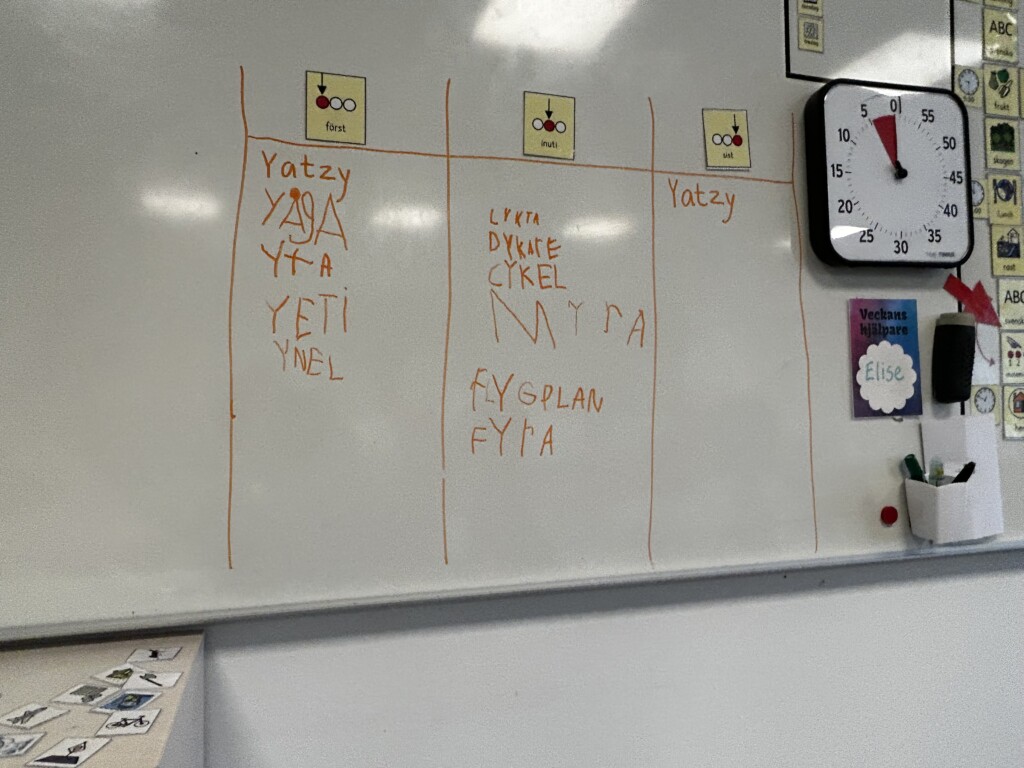 först
inuti
sist
Yatzy
YÅGA
YTA
YETI
YNEL
LYKTA
DYKARE
CYKEL
MYrA
FLYGPLAN
FYrA
Yatzy
0
55
50
45
40
35
30
25
20
15
10
5
TIME TIMER
Veckans
hjälpare
Elise
ABC
frukt
skogen
Lunch
rast
ABC